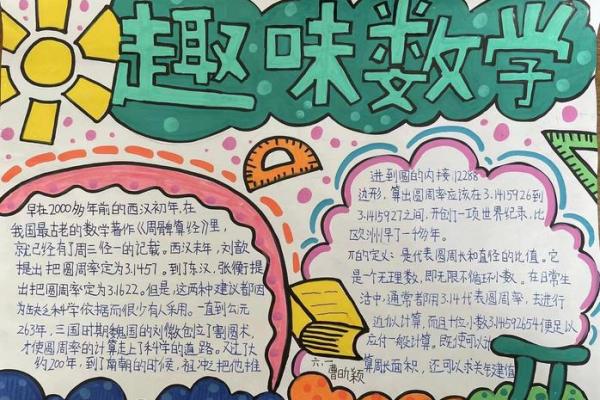 趣味数学
早在2000多年前的西汉初年,在
我国最古老的数学著作《周髀算径》里,
就已经有了周三径一的记载。西汉末年,刘歆
提出把圆周率定为3.1457。到了东汉,张衡提
出把圆周率定为3.1622。但是,这两种建议都因
为缺乏科学依据而很少有人采用。一直到公元
263年,三国时期魏国的刘徽创立了割圆术,
才使圆周率的计算走上了科学的道路。又过了大
约200年,到了南朝的时候,祖冲之把他推
进到圆的内接12288
边形,算出圆周率应该在3.1415926到
3.1415927之间,开创了一项世界纪录,比
欧洲早了一千多年。
π的定义:是代表圆周长和直径的比值。它
是个无理数,即无限不循环小数。在日常生
活中,通常都用3.14代表圆周率,去进行
近似计算,而且十位小数3.141592654便足以
应付一般计算。
算周长面积,还可以求
六.一
曹昕颖
π